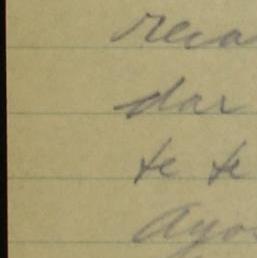 reca
dar
te te
ayou